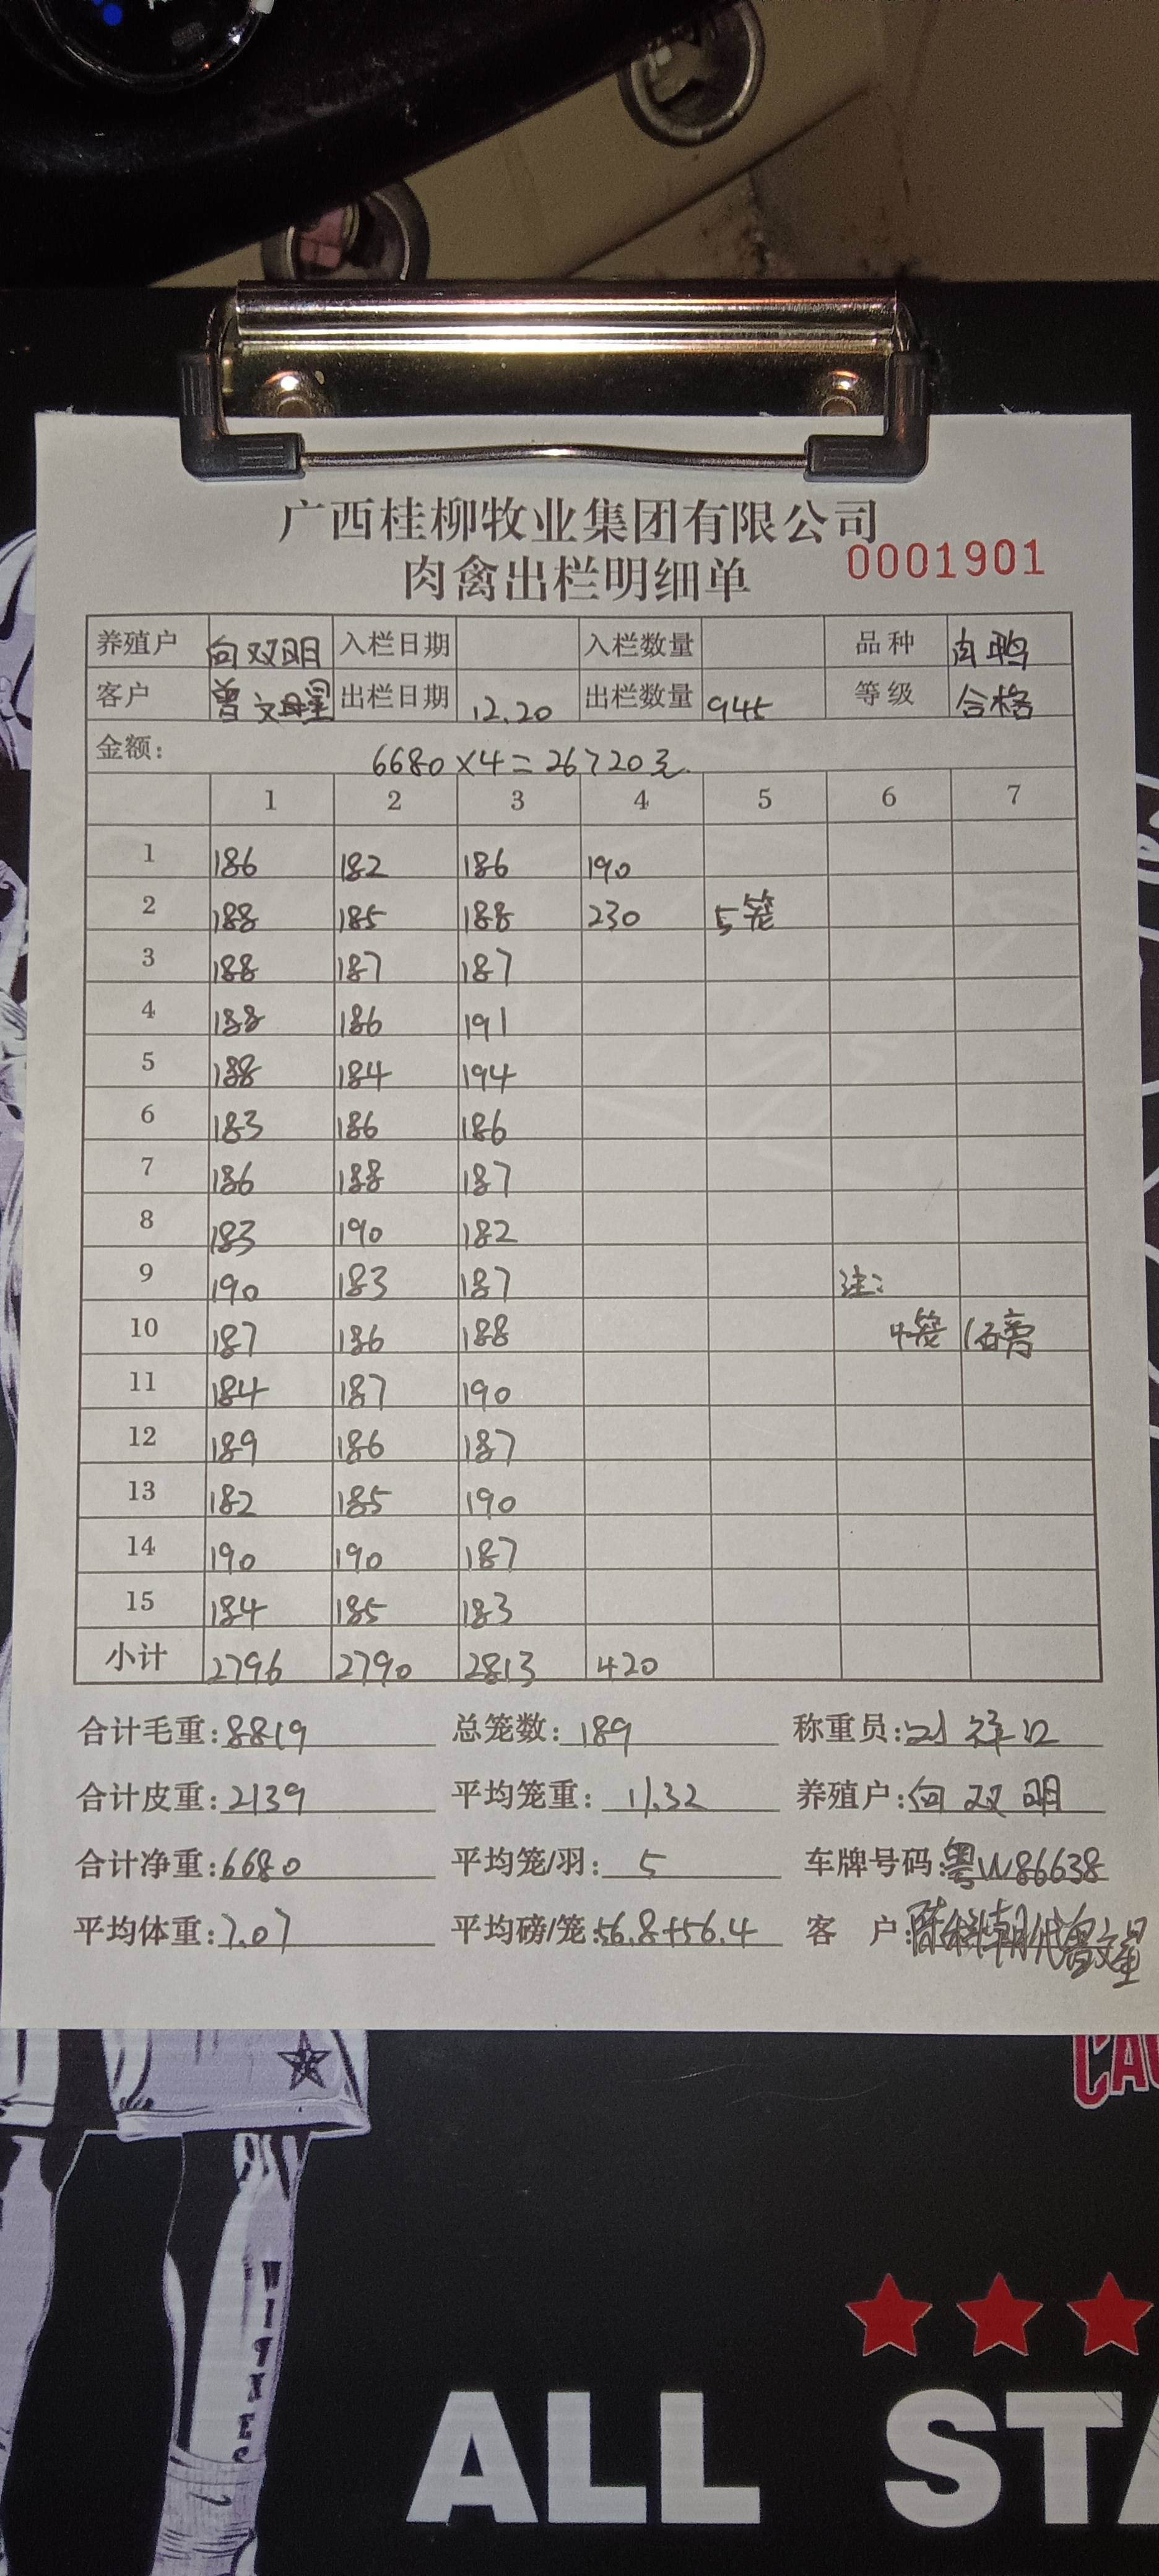 广西桂柳牧业集团有限公司
肉禽出栏明细单 0001901
养殖户 向双明 入栏日期 入栏数量 品种 肉鸭
客户 曾文星 出栏日期 12.20 出栏数量 945 等级 合格
金额: 6680×4=26720元
1 2 3 4 5 6 7
1 186 182 186 190
2 188 185 188 230 5笼
3 188 187 187
4 188 186 191
5 188 184 194
6 183 186 186
7 186 188 187
8 183 190 182
9 190 183 187 注:
10 187 186 188 4笼 1磅
11 184 187 190
12 189 186 187
13 182 185 190
14 190 190 187
15 184 185 183
小计 2796 2790 2813 420
合计毛重:8819 总笼数:189 称重员:刘
合计皮重:2139 平均笼重:11.32 养殖户:向双明
合计净重:6680 平均笼/羽:5 车牌号码:粤W86638
平均体重:7.07 平均磅/笼:56.8+56.4 客户:陈 朝代曾文星
CA
ALL STA